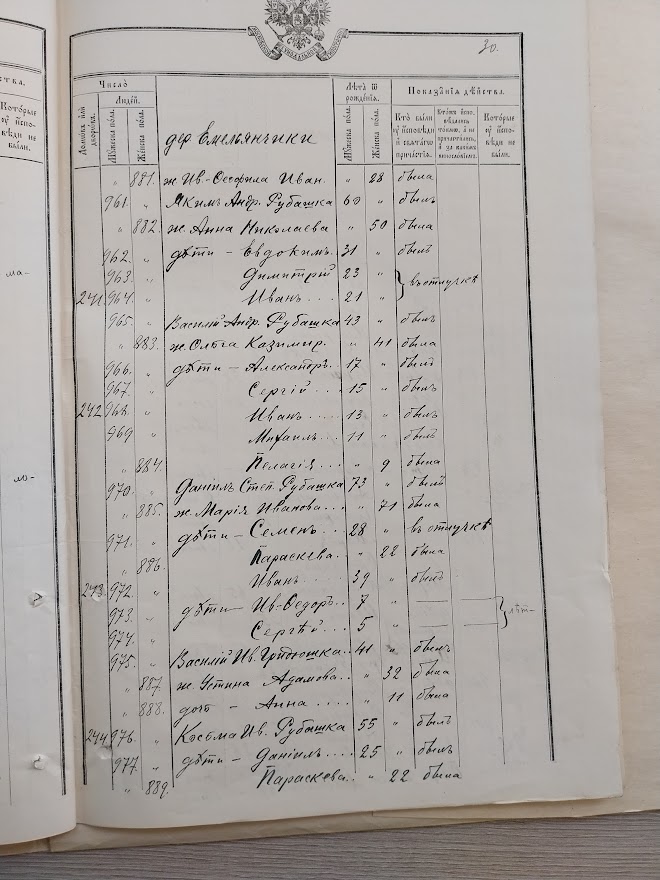 30.
Число
Людей.
Домовъ или дворовъ.
Мужеска пола.
Женска пола.
дер Емельянчики
Лѣта ѿ рожденія.
Мужеска пола.
Женска пола.
Показанія дѣйства.
Кто были у исповѣди и святаго причастія.
Которые у исповѣди не были.
ства.
Которые у исповѣди не были.
" 881. ж Ив-Ѳеофила Иван. " 28 была
961. " Якимъ Андр. Рубашка 60 " былъ
" 882. ж. Анна Николаева " 50 была
962. " дѣти - Евдокимъ. 31 " былъ
963. " Димитрій 23 "
} въ отлучкѣ
241 964. " Иванъ... 21 "
965. " Василій Андр. Рубашка 43 " былъ
" 883. ж. Ольга Казимир. " 41 была
966. " дѣти - Александръ. 17 " былъ
967. " Сергій... 15 " былъ
242 968. " Иванъ.... 13 " былъ
969 " Михаилъ... 11 " былъ
" 884. Пелагія... " 9 была
970. " Даніилъ Степ. Рубашка 73 " былъ
" 885. ж. Марія Иванова... " 71 была
971. " дѣти - Семенъ... 28 " въ отлучкѣ
" 886. Параскева. " 22 была
243 972. " Иванъ.... 39 " былъ
973. " дѣти - Ив-Ѳедоръ.. 7 "
974. " Сергѣй... 5 "
975. " Василій Ив. 41 " былъ
" 887. ж. Устина Адамова.. " 32 была
" 888. доч - Анна.... " 11 была
244 976. " Косьма Ив. Рубашка 55 " былъ
977. " дѣти - Даніилъ.... 25 " былъ
" 889. Параскева.. " 22 была
ма-
ло-